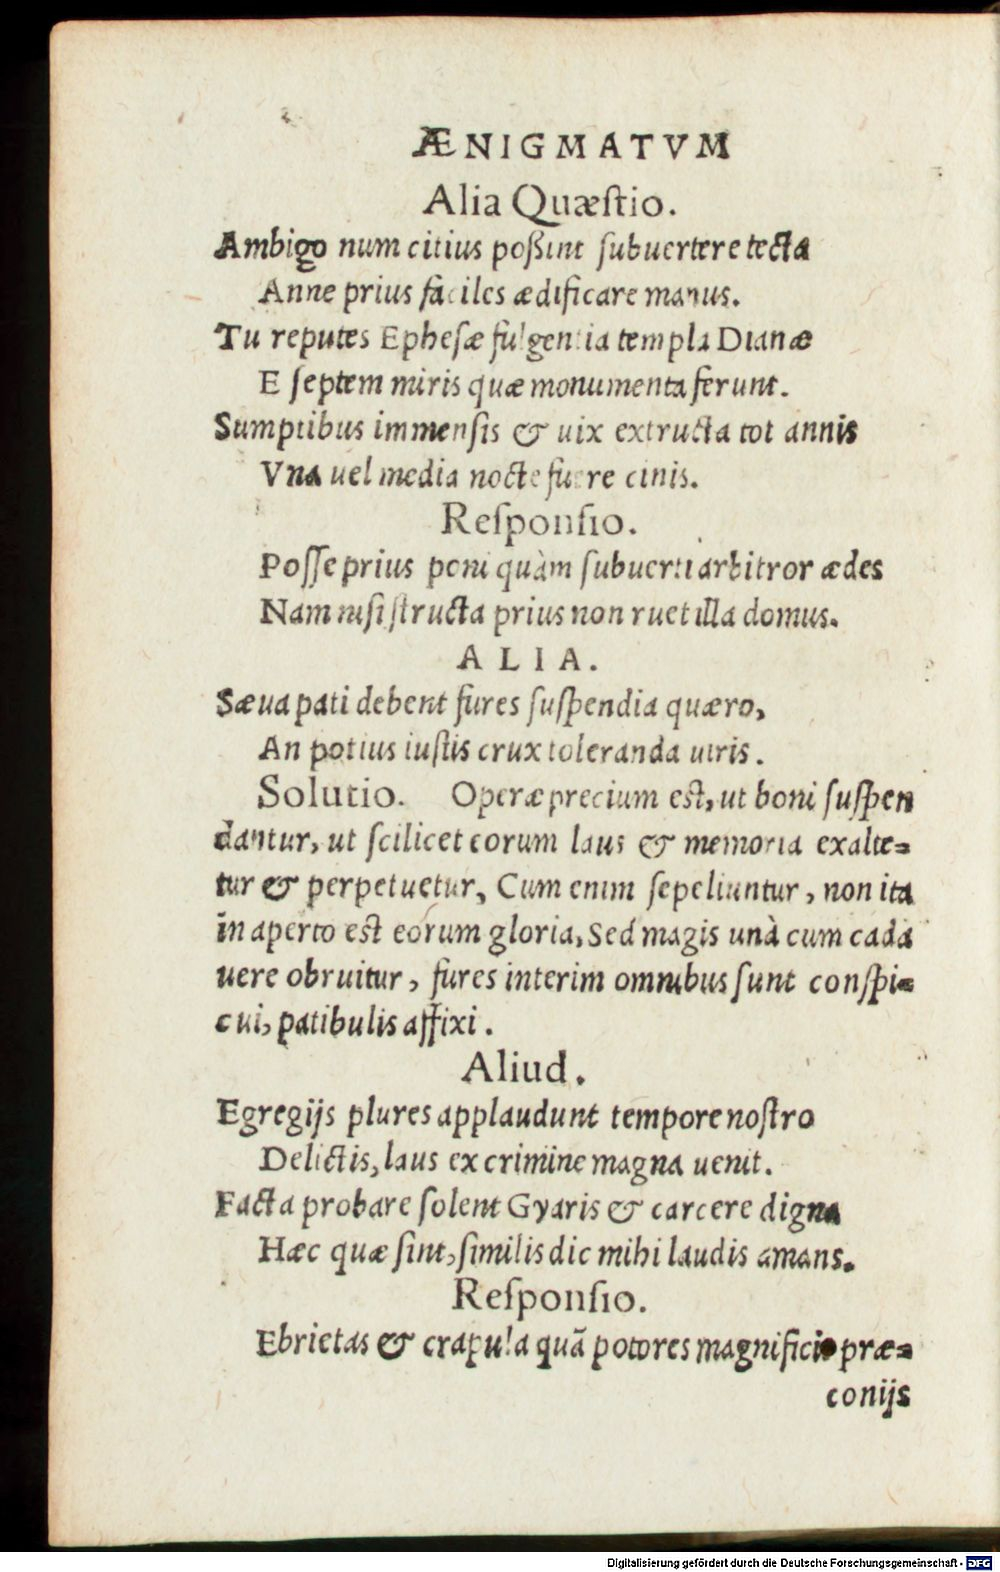 ÆNIGMATVM
Alia Quæſtio.
Ambigo num citius poßint ſubuertere tecta
Anne prius faciles ædificare manus.
Tu reputes Epheſæ fulgentia templa Dianæ
E ſeptem miris quæ monumenta ferunt.
Sumptibus immenſis & uix extructa tot annis
Vna uel media nocte fuere cinis.
Reſponſio.
Poſſe prius poni quàm ſubuerti arbitror ædes
Nam niſi ſtructa prius non ruet illa domus.
ALIA.
Sæua pati debent fures ſuſpendia quæro,
An potius iuſtis crux toleranda uiris.
Solutio. Operæ precium eſt, ut boni ſuſpen
dantur, ut ſcilicet eorum laus & memoria exalte=
tur & perpetuetur, Cum enim ſepeliuntur, non ita
in aperto eſt eorum gloria, Sed magis unà cum cada
uere obruitur, fures interim omnibus ſunt conſpi=
cui, patibulis affixi.
Aliud.
Egregijs plures applaudunt tempore noſtro
Delictis, laus ex crimine magna uenit.
Facta probare ſolent Gyaris & carcere digna
Hæc quæ ſint, ſimilis dic mihi laudis amans.
Reſponſio.
Ebrietas & crapula quā potores magnificis præ=
conijs
Digitalisierung gefördert durch die Deutsche Forschungsgemeinschaft - DFG